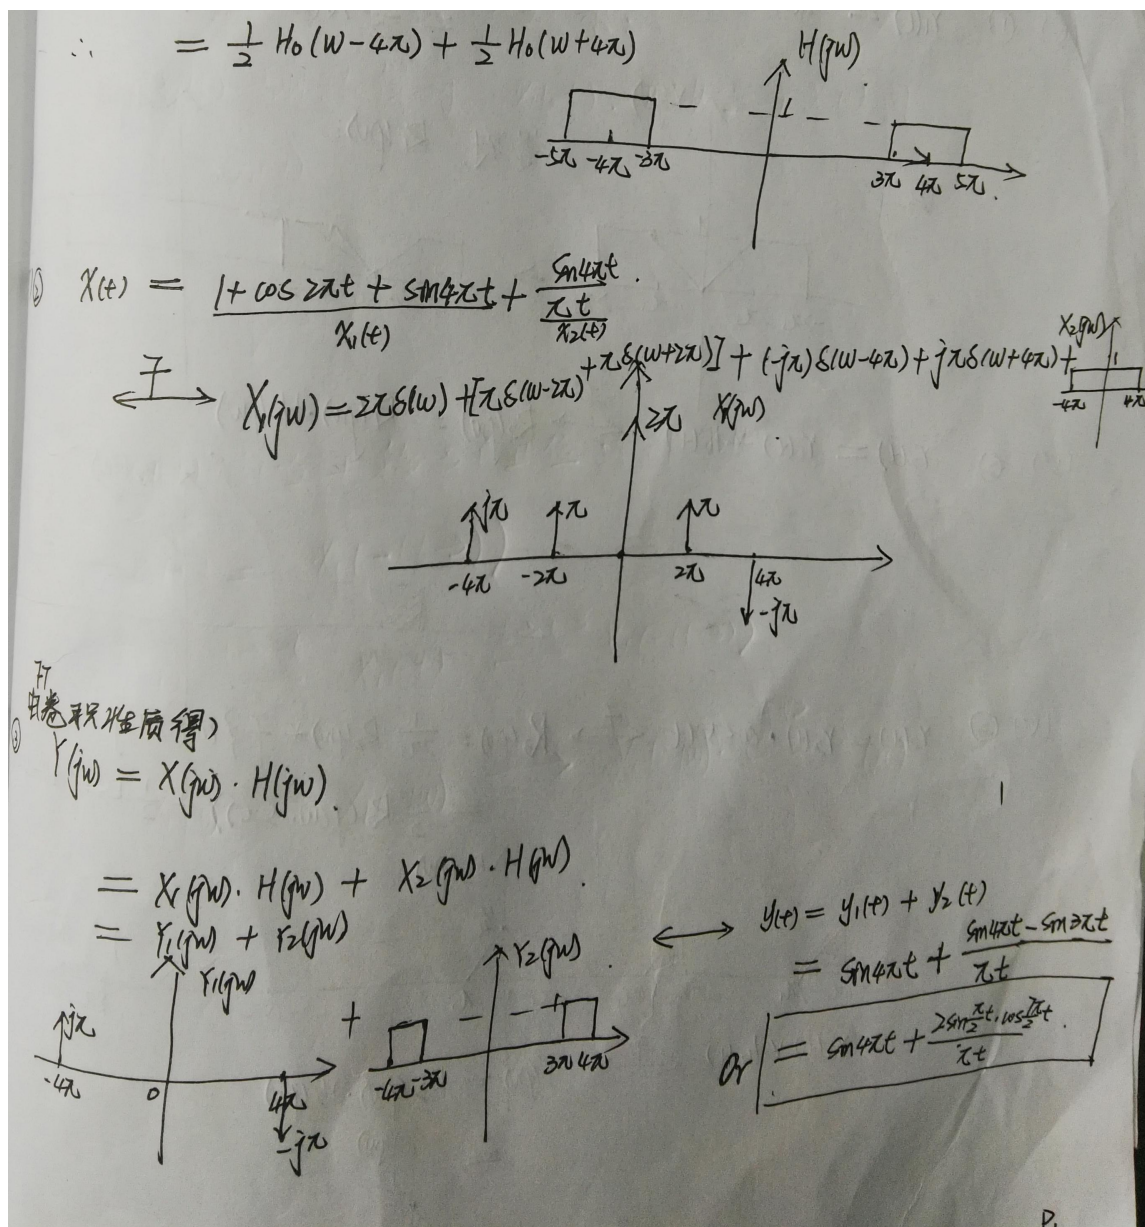 ∴ = 1/2 H₀(w-4π) + 1/2 H₀(w+4π)
H(jw)
1
-5π -4π -3π 3π 4π 5π
② x(t) = 1+cos2πt + sin4πt + sin4πt/πt
x₁(t) x₂(t)
F
X₁(jw) = 2πδ(w) + [πδ(w-2π) + πδ(w+2π)] + (-jπ)δ(w-4π) + jπδ(w+4π) +
X₂(jw)
1
-4π 4π
2π X(jw)
jπ π π
-4π -2π 2π 4π
-jπ
③ 由卷积性质得)
FT
Y(jw) = X(jw)·H(jw)
= X₁(jw)·H(jw) + X₂(jw)·H(jw)
= Y₁(jw) + Y₂(jw)
Y₁(jw)
jπ
-4π 0 4π
-jπ
+
Y₂(jw)
1
-4π -3π 3π 4π
y(t) = y₁(t) + y₂(t)
= sin4πt + (sin4πt - sin3πt)/πt
Or = sin4πt + (2sin π/2 t·cos 7π/2 t)/πt